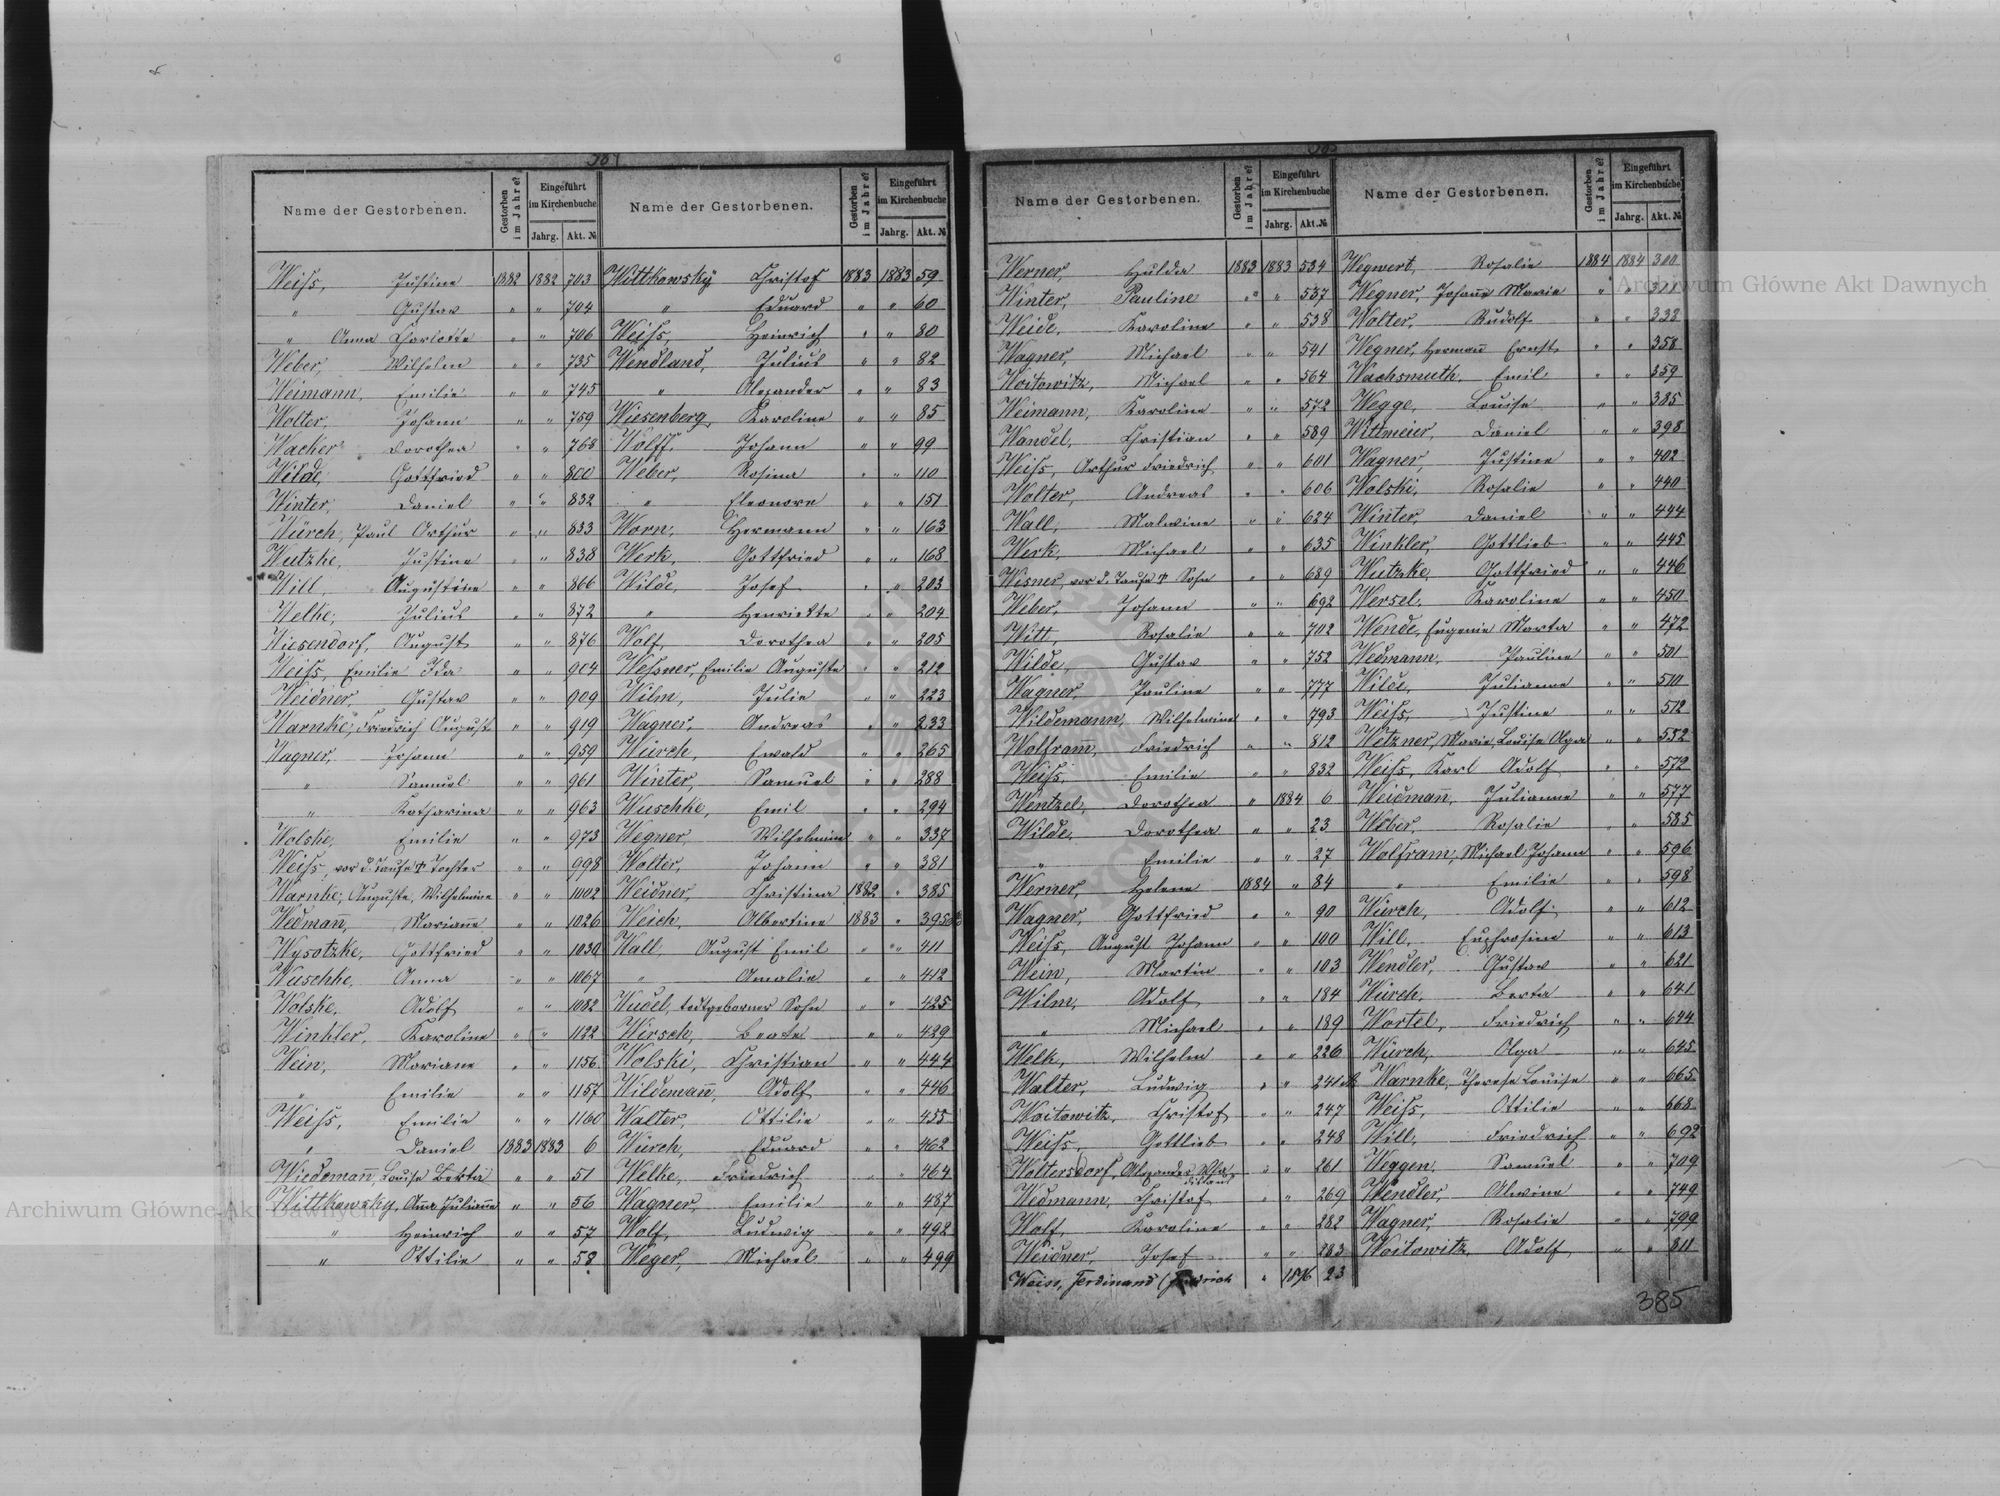 Name der Gestorbenen. Gestorben im Jahre? Eingeführt im Kirchenbuche Jahrg. Akt. №
Weiss, Justine 1882 1882 703
" Gustav " " 704
" Anna Charlotte " " 706
Weber, Wilhelm " " 735
Weimann, Emilie " " 745
Wolter, Johann " " 759
Wacker Dorothea " " 768
Wilde, Gottfried " " 800
Winter, Daniel " " 832
Würch, Paul Arthur " " 833
Wutzke, Justine " " 838
Will, Augustine " " 866
Welke, Julius " " 872
Wiesendorf, August " " 876
Weiss, Emilie Ida " " 904
Weidner, Gustav " " 909
Warnke, Friedrich August " " 919
Wagner, Johann " " 959
" Samuel " " 961
" Katharina " " 963
Wolske, Emilie " " 973
Weiss, vor d. Taufe † Tochter " " 998
Warnke, Auguste, Wilhelmine " " 1002
Wedmañ, Mariañe " " 1026
Wysotzke, Gottfried " " 1030
Wuschke, Anna " " 1067
Wolske, Adolf " " 1082
Winkler, Karoline " " 1122
Wein, Mariane " " 1156
" Emilie " " 1157
Weiss, Emilie " " 1160
" Daniel 1883 1883 6
Wiedemañ, Louise Berta " " 51
Wittkowsky, Aña Juliañe " " 56
" Heinrich " " 57
" Ottilie " " 58
Name der Gestorbenen. Gestorben im Jahre? Eingeführt im Kirchenbuche Jahrg. Akt. №
Wittkowsky Christof 1883 1883 59
" Eduard " " 60
Weiss, Heinrich " " 80
Wendland, Julius " " 82
" Alexander " " 83
Wiesenberg, Karoline " " 85
Wolff, Johann " " 99
Weber, Rosina " " 110
" Eleonore " " 151
Worn, Hermann " " 163
Werk, Gottfried " " 168
Wilde, Josef " " 203
" Henriette " " 204
Wolf, Dorothea " " 205
Wessner, Emilie Auguste " " 212
Wilm, Julie " " 223
Wagner, Andreas " " 233
Würch, Ewald " " 265
Winter, Samuel " " 288
Wuschke, Emil " " 294
Wegner, Wilhelmine " " 337
Wolter, Johann " " 381
Weidner, Christina 1882 " 385
Weich, Albertine 1883 " 395
Wall, August Emil " " 411
" Amalie " " 412
Wudel, todtgeborner Sohn " " 425
Wirsch, Beate " " 429
Wolski, Christian " " 444
Wildemañ, Adolf " " 446
Walter, Ottilie " " 455
Würch, Eduard " " 462
Welke, Friedrich " " 464
Wagner, Emilie " " 487
Wolf, Ludwig " " 492
Weger, Michael " " 499
Name der Gestorbenen. Gestorben im Jahre? Eingeführt im Kirchenbuche Jahrg. Akt. №
Werner, Hulda 1883 1883 534
Winter, Pauline " " 537
Weide, Karoline " " 538
Wagner, Michael " " 541
Woitowitz, Michael " " 564
Weimann, Karoline " " 572
Wandel, Christian " " 589
Weiss, Arthur Friedrich " " 601
Wolter, Andreas " " 606
Wall, Malwine " " 624
Werk, Michael " " 635
Wisner, vor d. Taufe † Sohn " " 689
Weber, Johann " " 692
Witt, Rosalie " " 702
Wilde, Gustav " " 752
Wagner, Pauline " " 777
Wildemann, Wilhelmine " " 793
Wolfram̃, Friedrich " " 812
Weiss, Emilie " " 832
Wentzel, Dorothea " 1884 6
Wilde, Dorothea " " 23
" Emilie " " 27
Werner, Helene 1884 " 84
Wagner, Gottfried " " 90
Weiss, August Johann " " 100
Wein, Martin " " 103
Wilm, Adolf " " 184
" Michael " " 189
Welk, Wilhelm " " 226
Walter, Ludwig " " 241
Woitowitz, Christof " " 247
Weiss, Gottlieb " " 248
Woltersdorf, Alexander " " 261
Wedmann, Christof " " 269
Wolf, Karoline " " 282
Weidner, Josef " " 283
Weiss, Ferdinand Friedrich " 1876 23
Name der Gestorbenen. Gestorben im Jahre? Eingeführt im Kirchenbuche Jahrg. Akt. №
Wegwert, Rosalie 1884 1884 300
Wegner, Johañ Marie " "
Wolter, Rudolf " " 333
Wegner, Hermañ Ernst " " 358
Wachsmuth, Emil " " 359
Wegge, Louise " " 385
Wittmeier, Daniel " " 398
Wagner, Justine " " 402
Wolski, Rosalie " " 440
Winter, Daniel " " 444
Winkler, Gottlieb " " 445
Wutzke, Gottfried " " 446
Wersel, Karoline " " 450
Wende, Eugenie Marta " " 472
Wedmann, Pauline " " 501
Wilde, Julianne " " 510
Weiss, Justine " " 512
Wetzner, Marie Louise Olga " " 552
Weiss, Karl Adolf " " 572
Weidmañ, Julianne " " 577
Weber, Rosalie " " 585
Wolfram, Michael Johann " " 596
" Emilie " " 598
Würch, Adolf " " 612
Will, Euphrosine " " 613
Wendler, Gustav " " 621
Würch, Berta " " 641
Wortel, Friedrich " " 644
Würch, Olga " " 645
Warnke, Therese Louise " " 665
Weiss, Ottilie " " 668
Will, Friedrich " " 692
Weggen, Samuel " " 709
Wendler, Alwine " " 749
Wagner, Rosalie " " 799
Woitowitz, Adolf " " 811
385
Archiwum Główne Akt Dawnych
Archiwum Główne Akt Dawnych